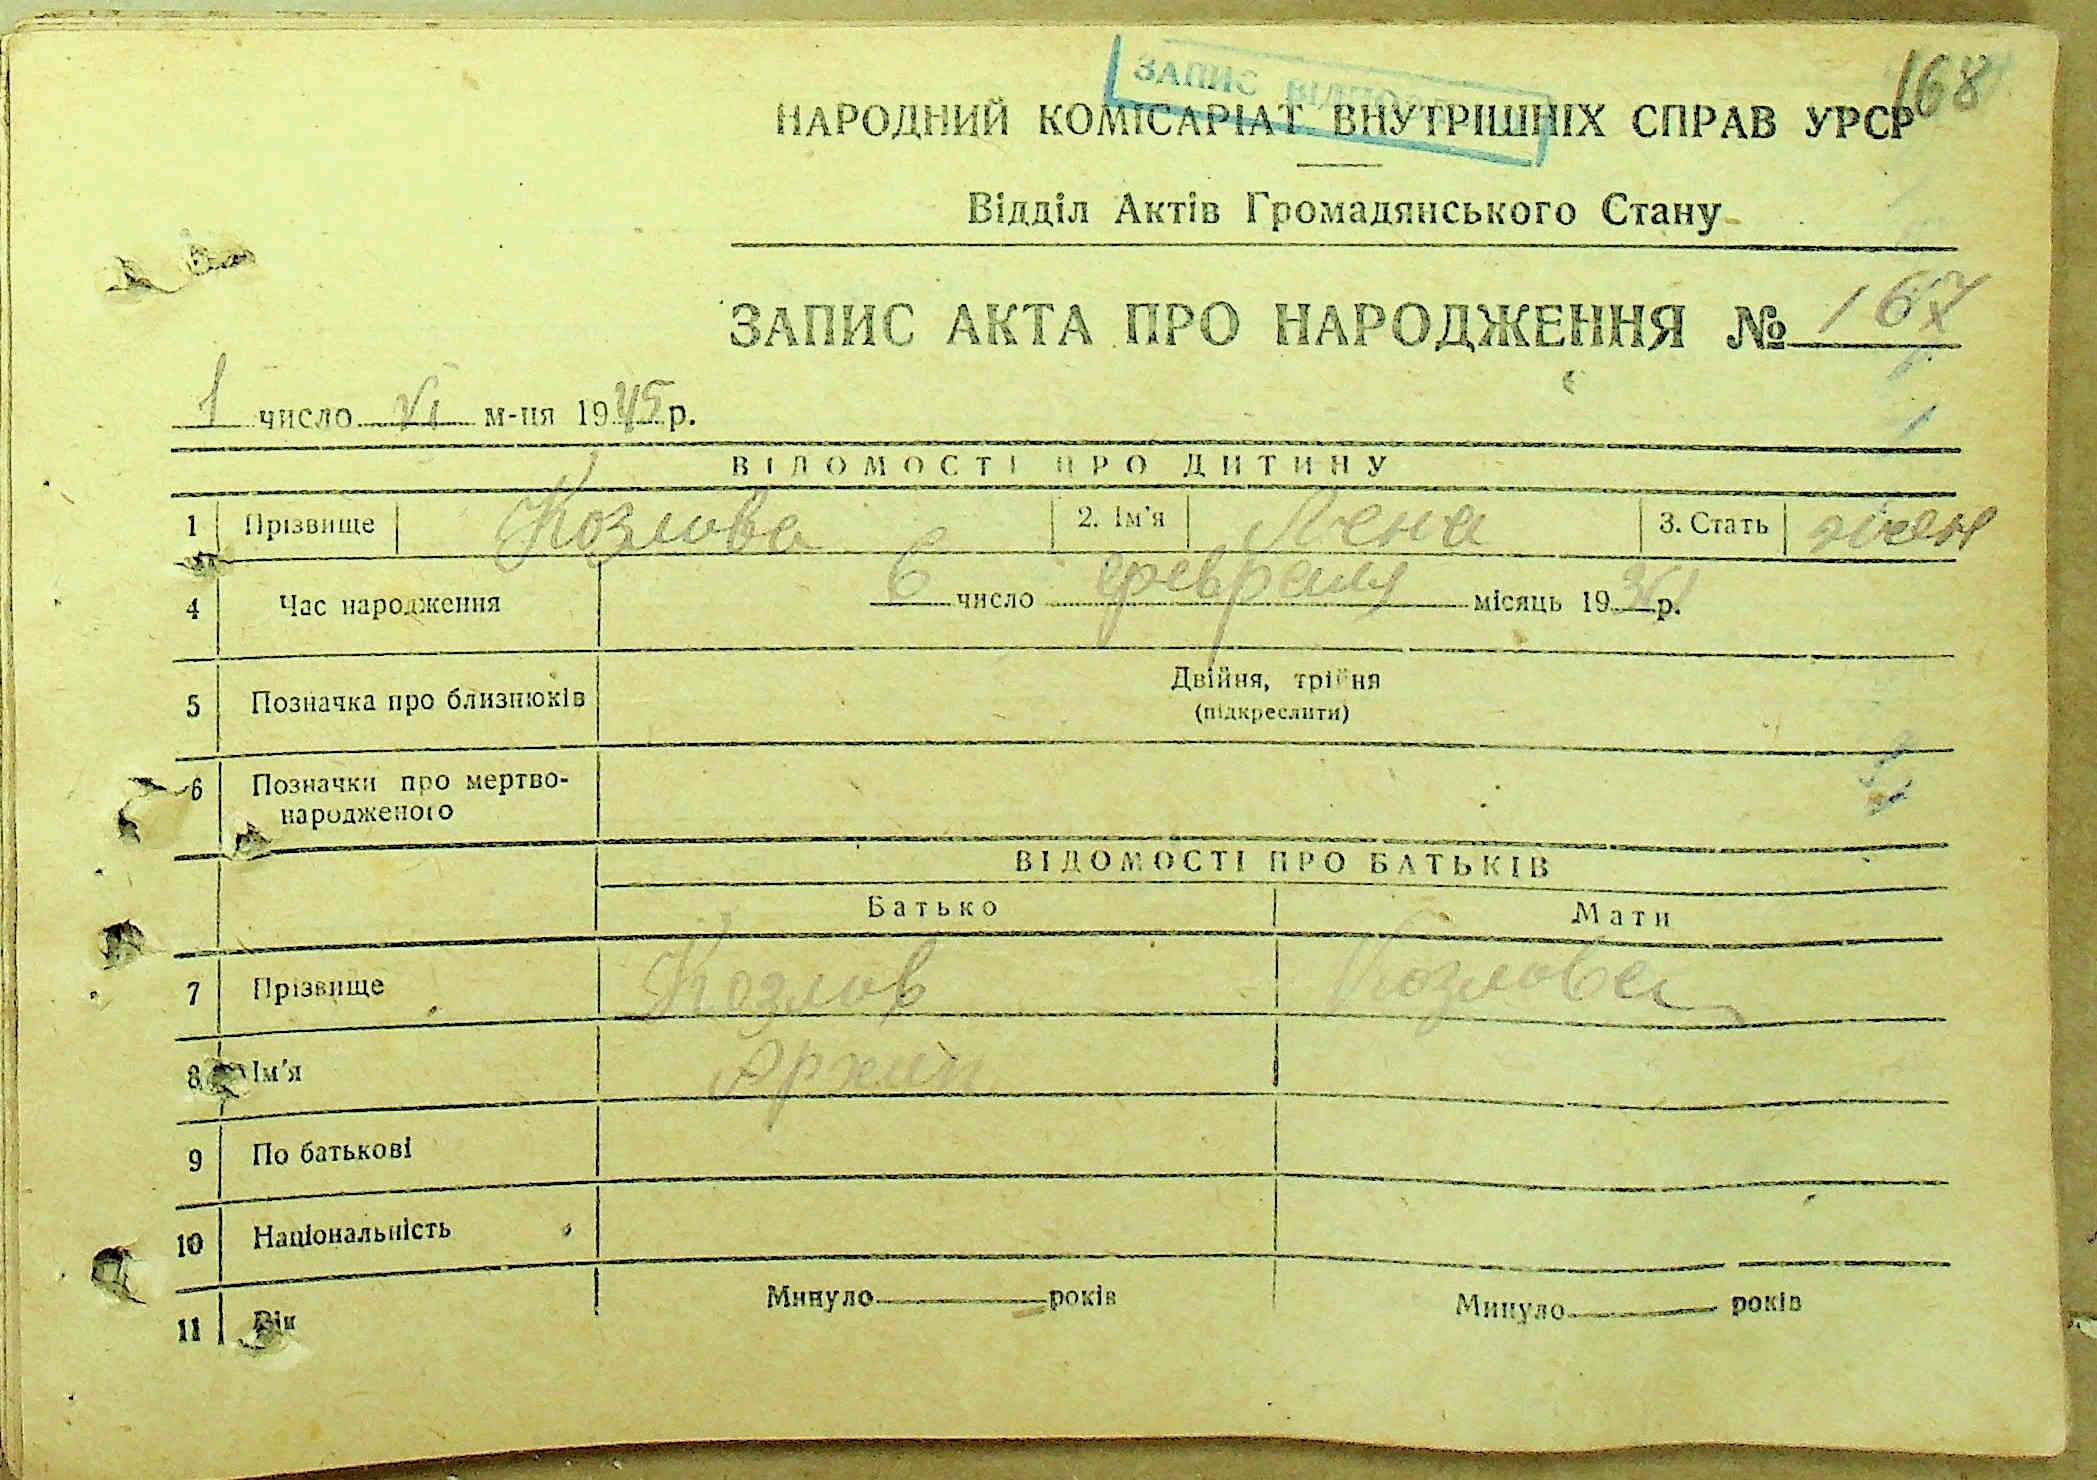 168
ЗАПИС
НАРОДНИЙ КОМІСАРІАТ ВНУТРІШНІХ СПРАВ УРСР
Відділ Актів Громадянського Стану
ЗАПИС АКТА ПРО НАРОДЖЕННЯ № 167
1 число VI м-ця 1945 р.
ВІДОМОСТІ ПРО ДИТИНУ
1 Прізвище Козлова 2. Ім'я Лена 3. Стать жен
4 Час народження 6 число февраля місяць 19 р.
5 Позначка про близнюків Двійня, трійня
(підкреслити)
6 Позначки про мертво-
народженого
ВІДОМОСТІ ПРО БАТЬКІВ
Батько Мати
7 Прізвище Козлов Козлова
8 Ім'я Архип
9 По батькові
10 Національність
11 Вік Минуло років Минуло років